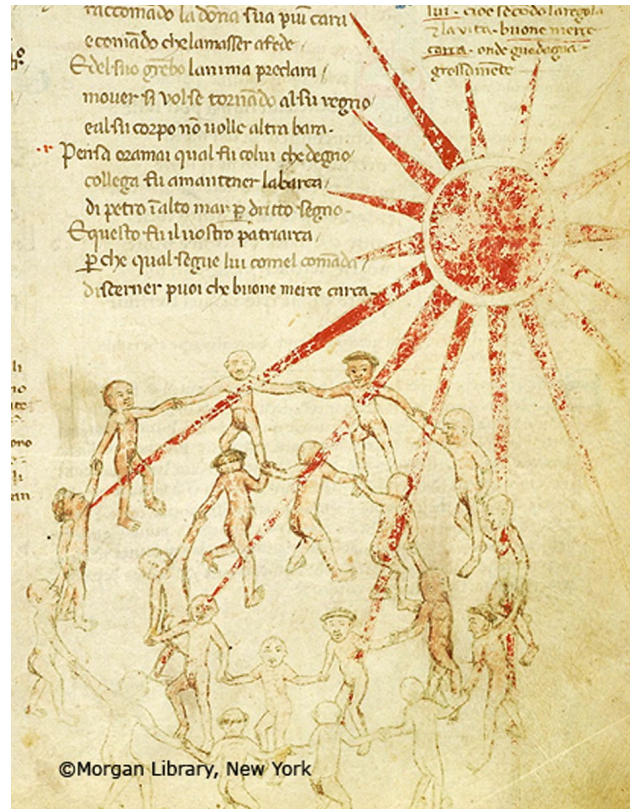 raccomādo la dōna sua piu cara
e comādo che lamasser a fede
E del suo grēbo lanima preclara
mover si volse tornādo al su regno
e al su corpo nō uolle altra bara.
Pensa oramai qual fu colui che degno
collega fu a mantener la barca
di petro ī alto mar ꝑ dritto segno.
E questo fu il uostro patriarca
ꝑ che qual segue lui comel comāda
discerner puoi che buone merce carca.
lui. cioe secōdo la regola
la vita. buone merce
carca. onde guadagna
grossamēte
li
no
ono
li
an
©Morgan Library, New York